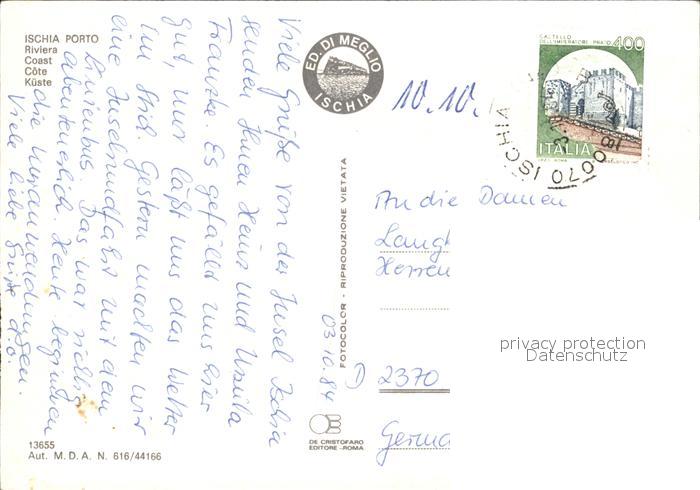 ISCHIA PORTO
Riviera
Coast
Côte
Küste
Viele Grüße von der Insel Ischia
senden Ihnen Heinz und Ursula
Es gefällt uns hier
gut, nur läßt uns das Wetter
im Stich. Gestern machten wir
eine Inselrundfahrt mit dem
Linienbus. Das war richtig
abenteuerlich. Heute beginnen
die Kuranwendungen.
Viele liebe Grüße d.o.
13655
Aut. M. D. A. N. 616/44166
ED. DI MEGLIO
ISCHIA
FOTOCOLOR - RIPRODUZIONE VIETATA
03.10.84
DE CRISTOFARO
EDITORE - ROMA
10.10.
CASTELLO
DELL'IMPERATORE - PRATO
400
ITALIA
ISCHIA
An die Damen
Herren
D 2370
privacy protection
Datenschutz